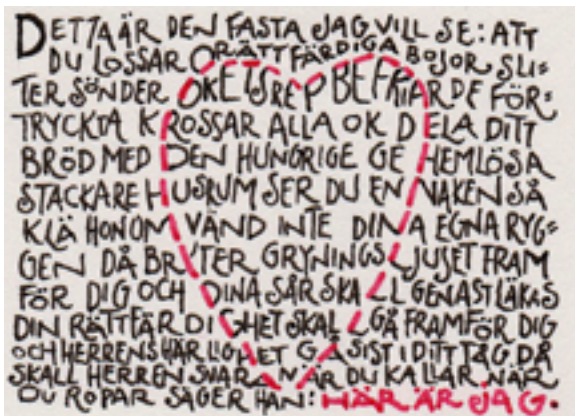 DETTA ÄR DEN FASTA JAG VILL SE: ATT
DU LOSSAR ORÄTTFÄRDIGA BOJOR, SLI=
TER SÖNDER OKETS REP BEFRIAR DE FÖR=
TRYCKTA KROSSAR ALLA OK DELA DITT
BRÖD MED DEN HUNGRIGE GE HEMLÖSA
STACKARE HUSRUM SER DU EN NAKEN SÅ
KLÄ HONOM VÄND INTE DINA EGNA RYG=
GEN DÅ BRYTER GRYNINGSLJUSET FRAM
FÖR DIG OCH DINA SÅR SKALL GENAST LÄKAS
DIN RÄTTFÄRDIGHET SKALL GÅ FRAMFÖR DIG
OCH HERRENS HÄRLIGHET GÅ SIST I DITT TÅG DÅ
SKALL HERREN SVARA NÄR DU KALLAR NÄR
DU ROPAR SÄGER HAN: HÄR ÄR JAG.